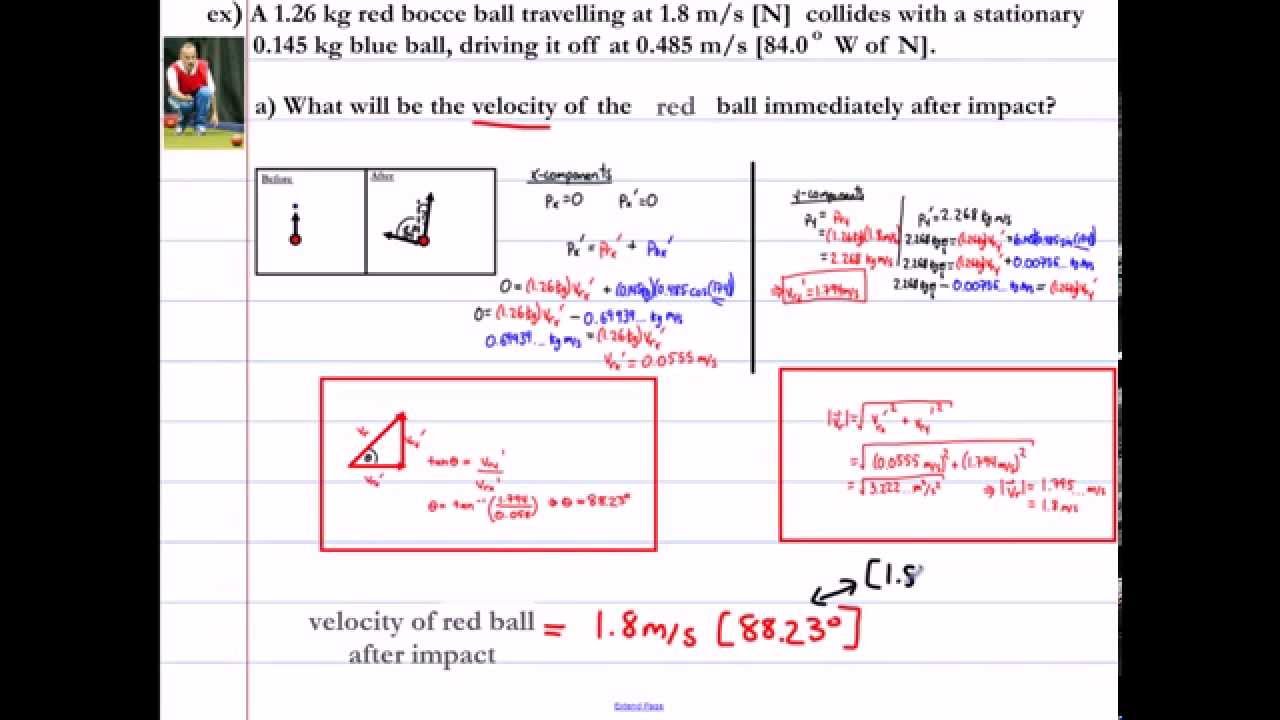 ex) A 1.26 kg red bocce ball travelling at 1.8 m/s [N] collides with a stationary
0.145 kg blue ball, driving it off at 0.485 m/s [84.0° W of N].
a) What will be the velocity of the red ball immediately after impact?
Before
After
x-components
Px=0 Px'=0
Px' = Prx' + Pbx'
0=(1.26kg)Vrx' + (0.145kg)(0.485cos(174))
0=(1.26kg)Vrx' - 0.69939... kg m/s
0.69939... kg m/s = (1.26kg)Vrx'
Vrx' = 0.0555 m/s
y-components
Py = Pry
=(1.26kg)(1.8m/s)
= 2.268 kg m/s
⇒ Vry' = 1.794m/s
Py' = 2.268 kg m/s
+0.00736... kg m/s
- 0.00736... kg m/s = (1.26kg)Vry'
Vr
Vry'
θ
Vrx'
tanθ = Vry' / Vrx'
θ = tan⁻¹(1.794/0.056) ⇒ θ = 88.23°
|Vr| = √(Vrx'² + Vry'²)
= √((0.0555 m/s)² + (1.794m/s)²)
= √(3.222... m²/s²) ⇒ |Vr| = 1.795... m/s
= 1.8 m/s
[1.8
velocity of red ball = 1.8m/s [88.23°]
after impact
Extend Page